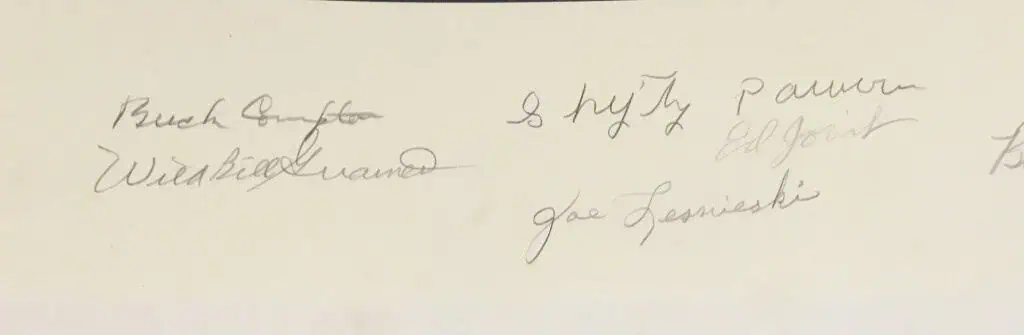 Buck Compton
Wild Bill Guarnere
Shifty Powers
Ed Joint
Joe Lesnieski